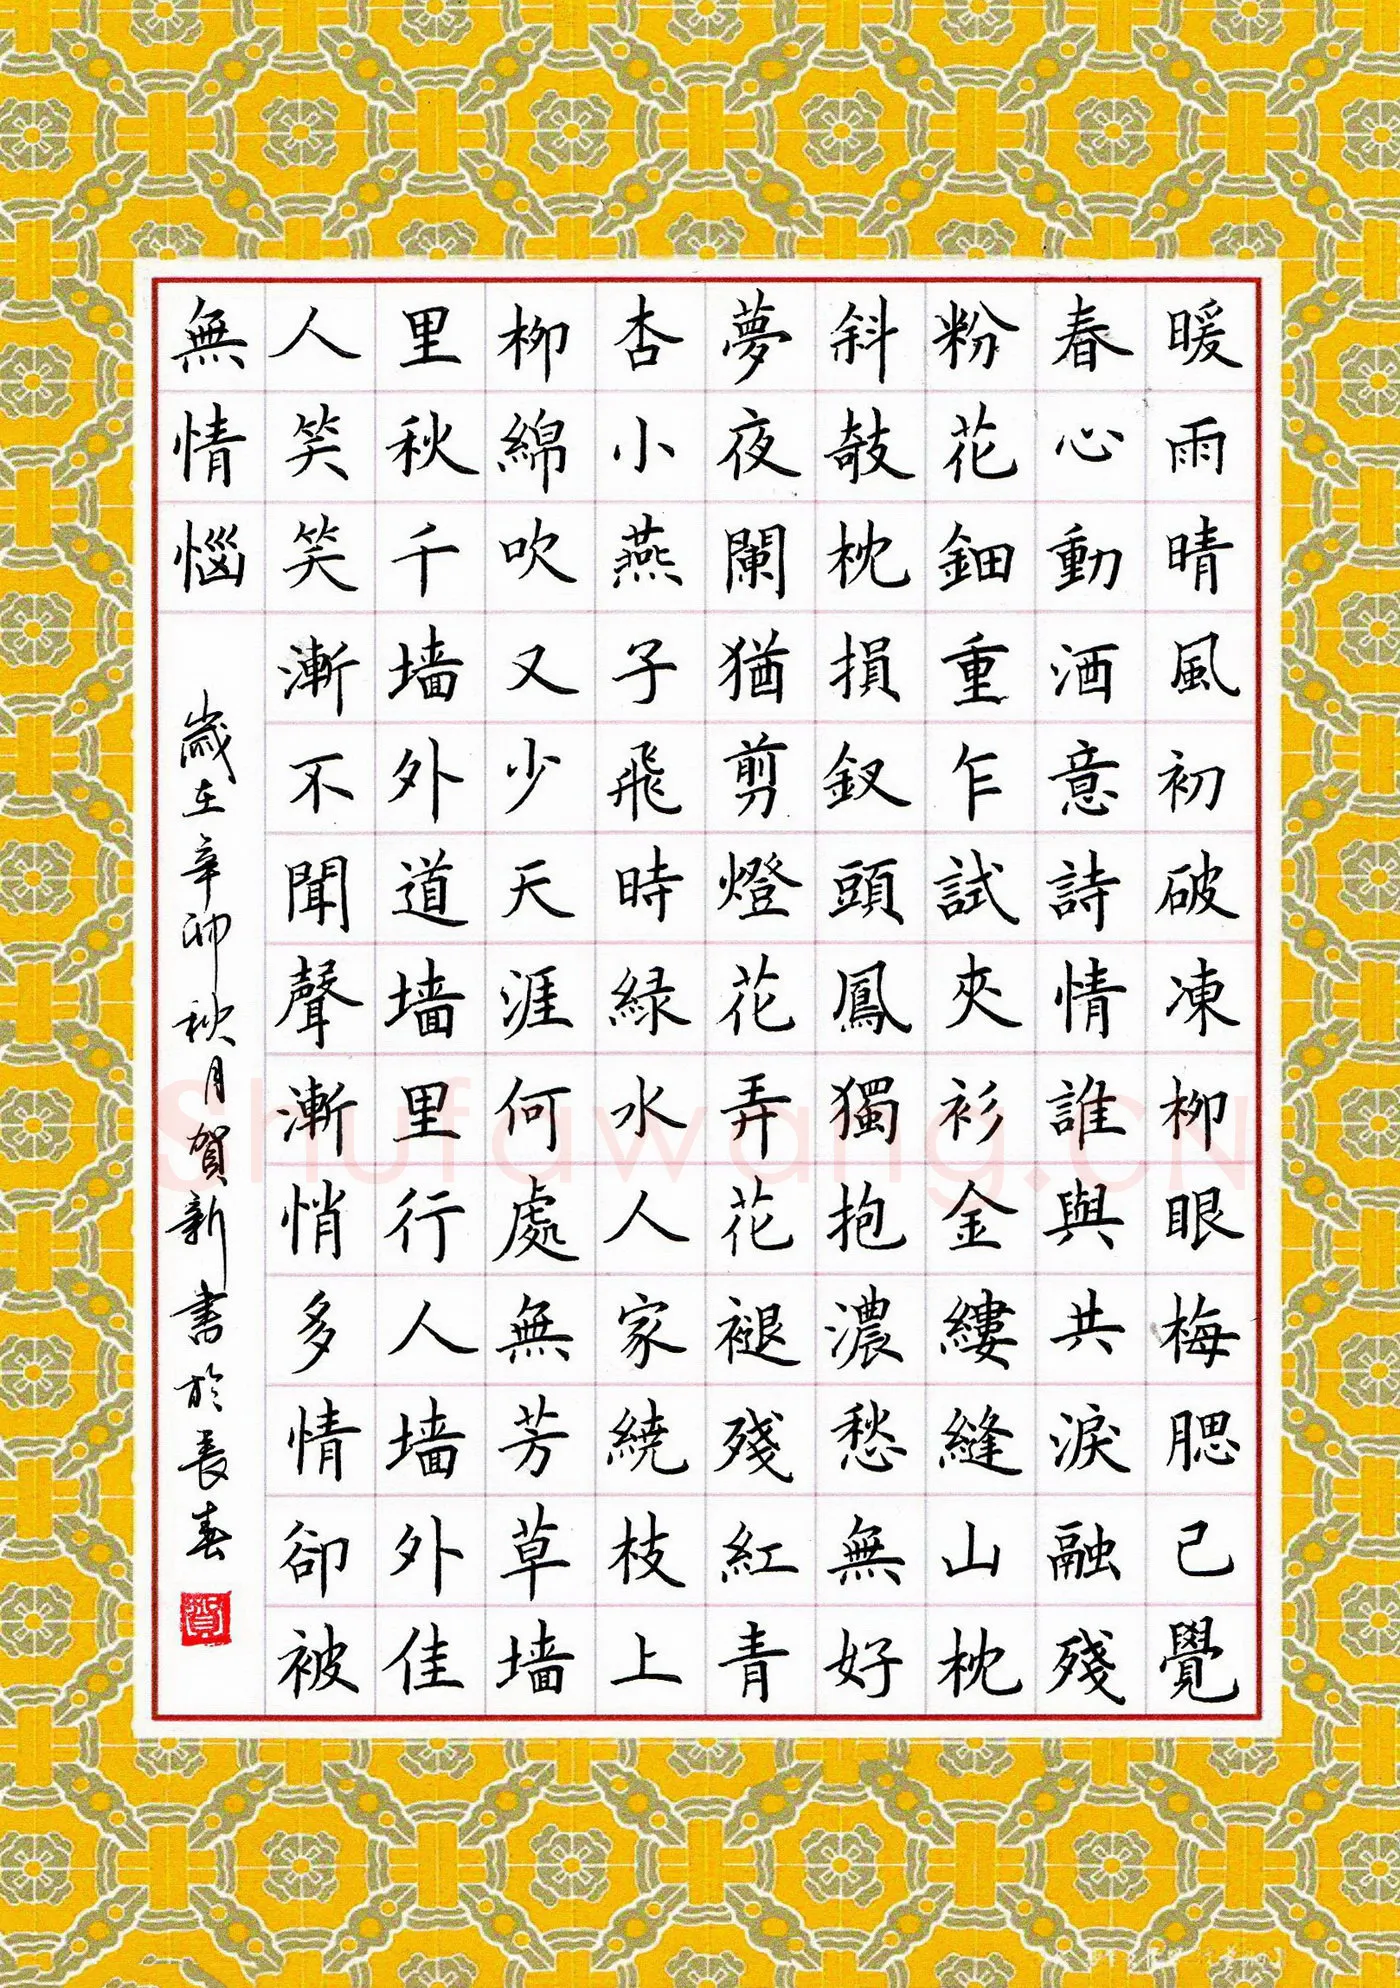 暖雨晴風初破凍柳眼梅腮已覺
春心動酒意詩情誰與共淚融殘
粉花鈿重乍試夾衫金縷縫山枕
斜攲枕損釵頭鳳獨抱濃愁無好
夢夜闌猶剪燈花弄花褪殘紅青
杏小燕子飛時緑水人家繞枝上
柳綿吹又少天涯何處無芳草墙
里秋千墙外道墙里行人墙外佳
人笑笑漸不聞聲漸悄多情卻被
無情惱
歲在辛卯秋月賀新書於長春
賀
Shufawang.CN